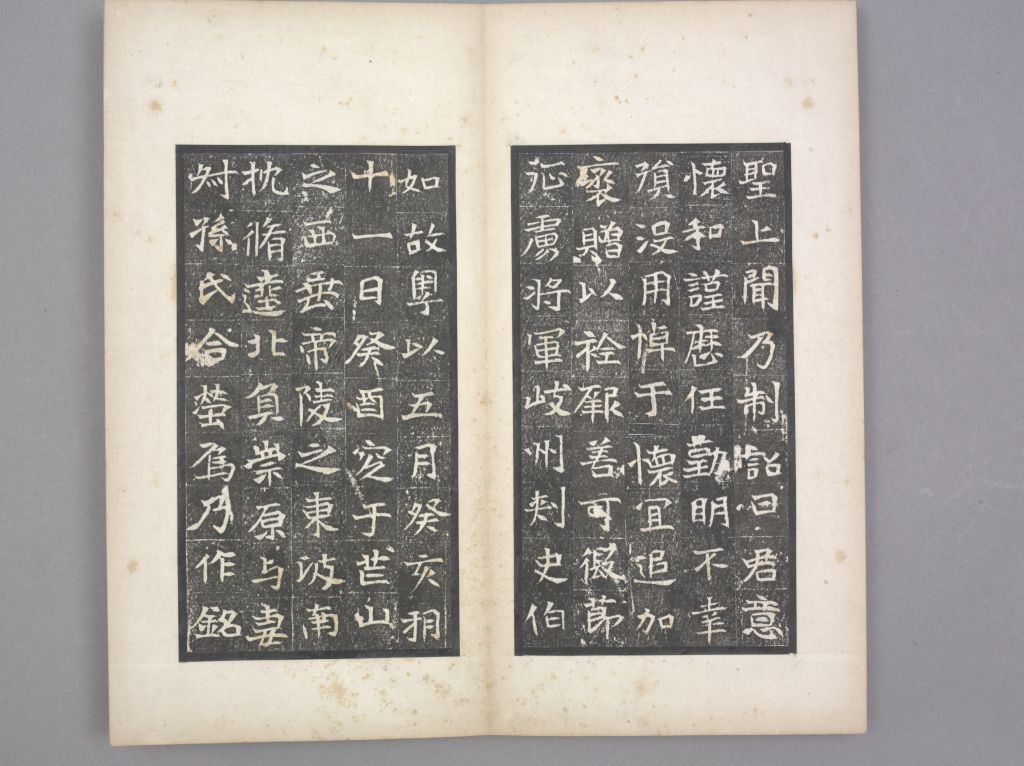 聖上聞乃制詔曰君意
懷和謹歷任勤明不幸
殞没用悼于懷宜追加
褒贈以栓厥善可假節
征虜將軍岐州刺史伯
如故粵以五月癸亥朔
十一日癸酉窆于芒山
之西垂帝陵之東波南
枕脩逵北負崇原与妻
叔孫氏合塋焉乃作銘